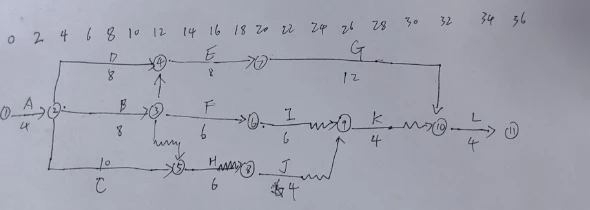 0 2 4 6 8 10 12 14 16 18 20 22 24 26 28 30 32 34 36
D ④ E ⑦ G
8 8 12
① A ② B ③ F ⑥ I ⑨ K ⑩ L ⑪
4 8 6 6 4 4
10 ⑤ H ⑧ J
C 6 4